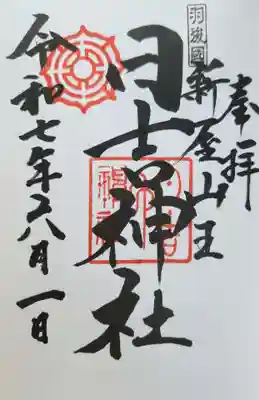 奉拝
羽後國
新屋山王
日吉神社
令和七年八月一日